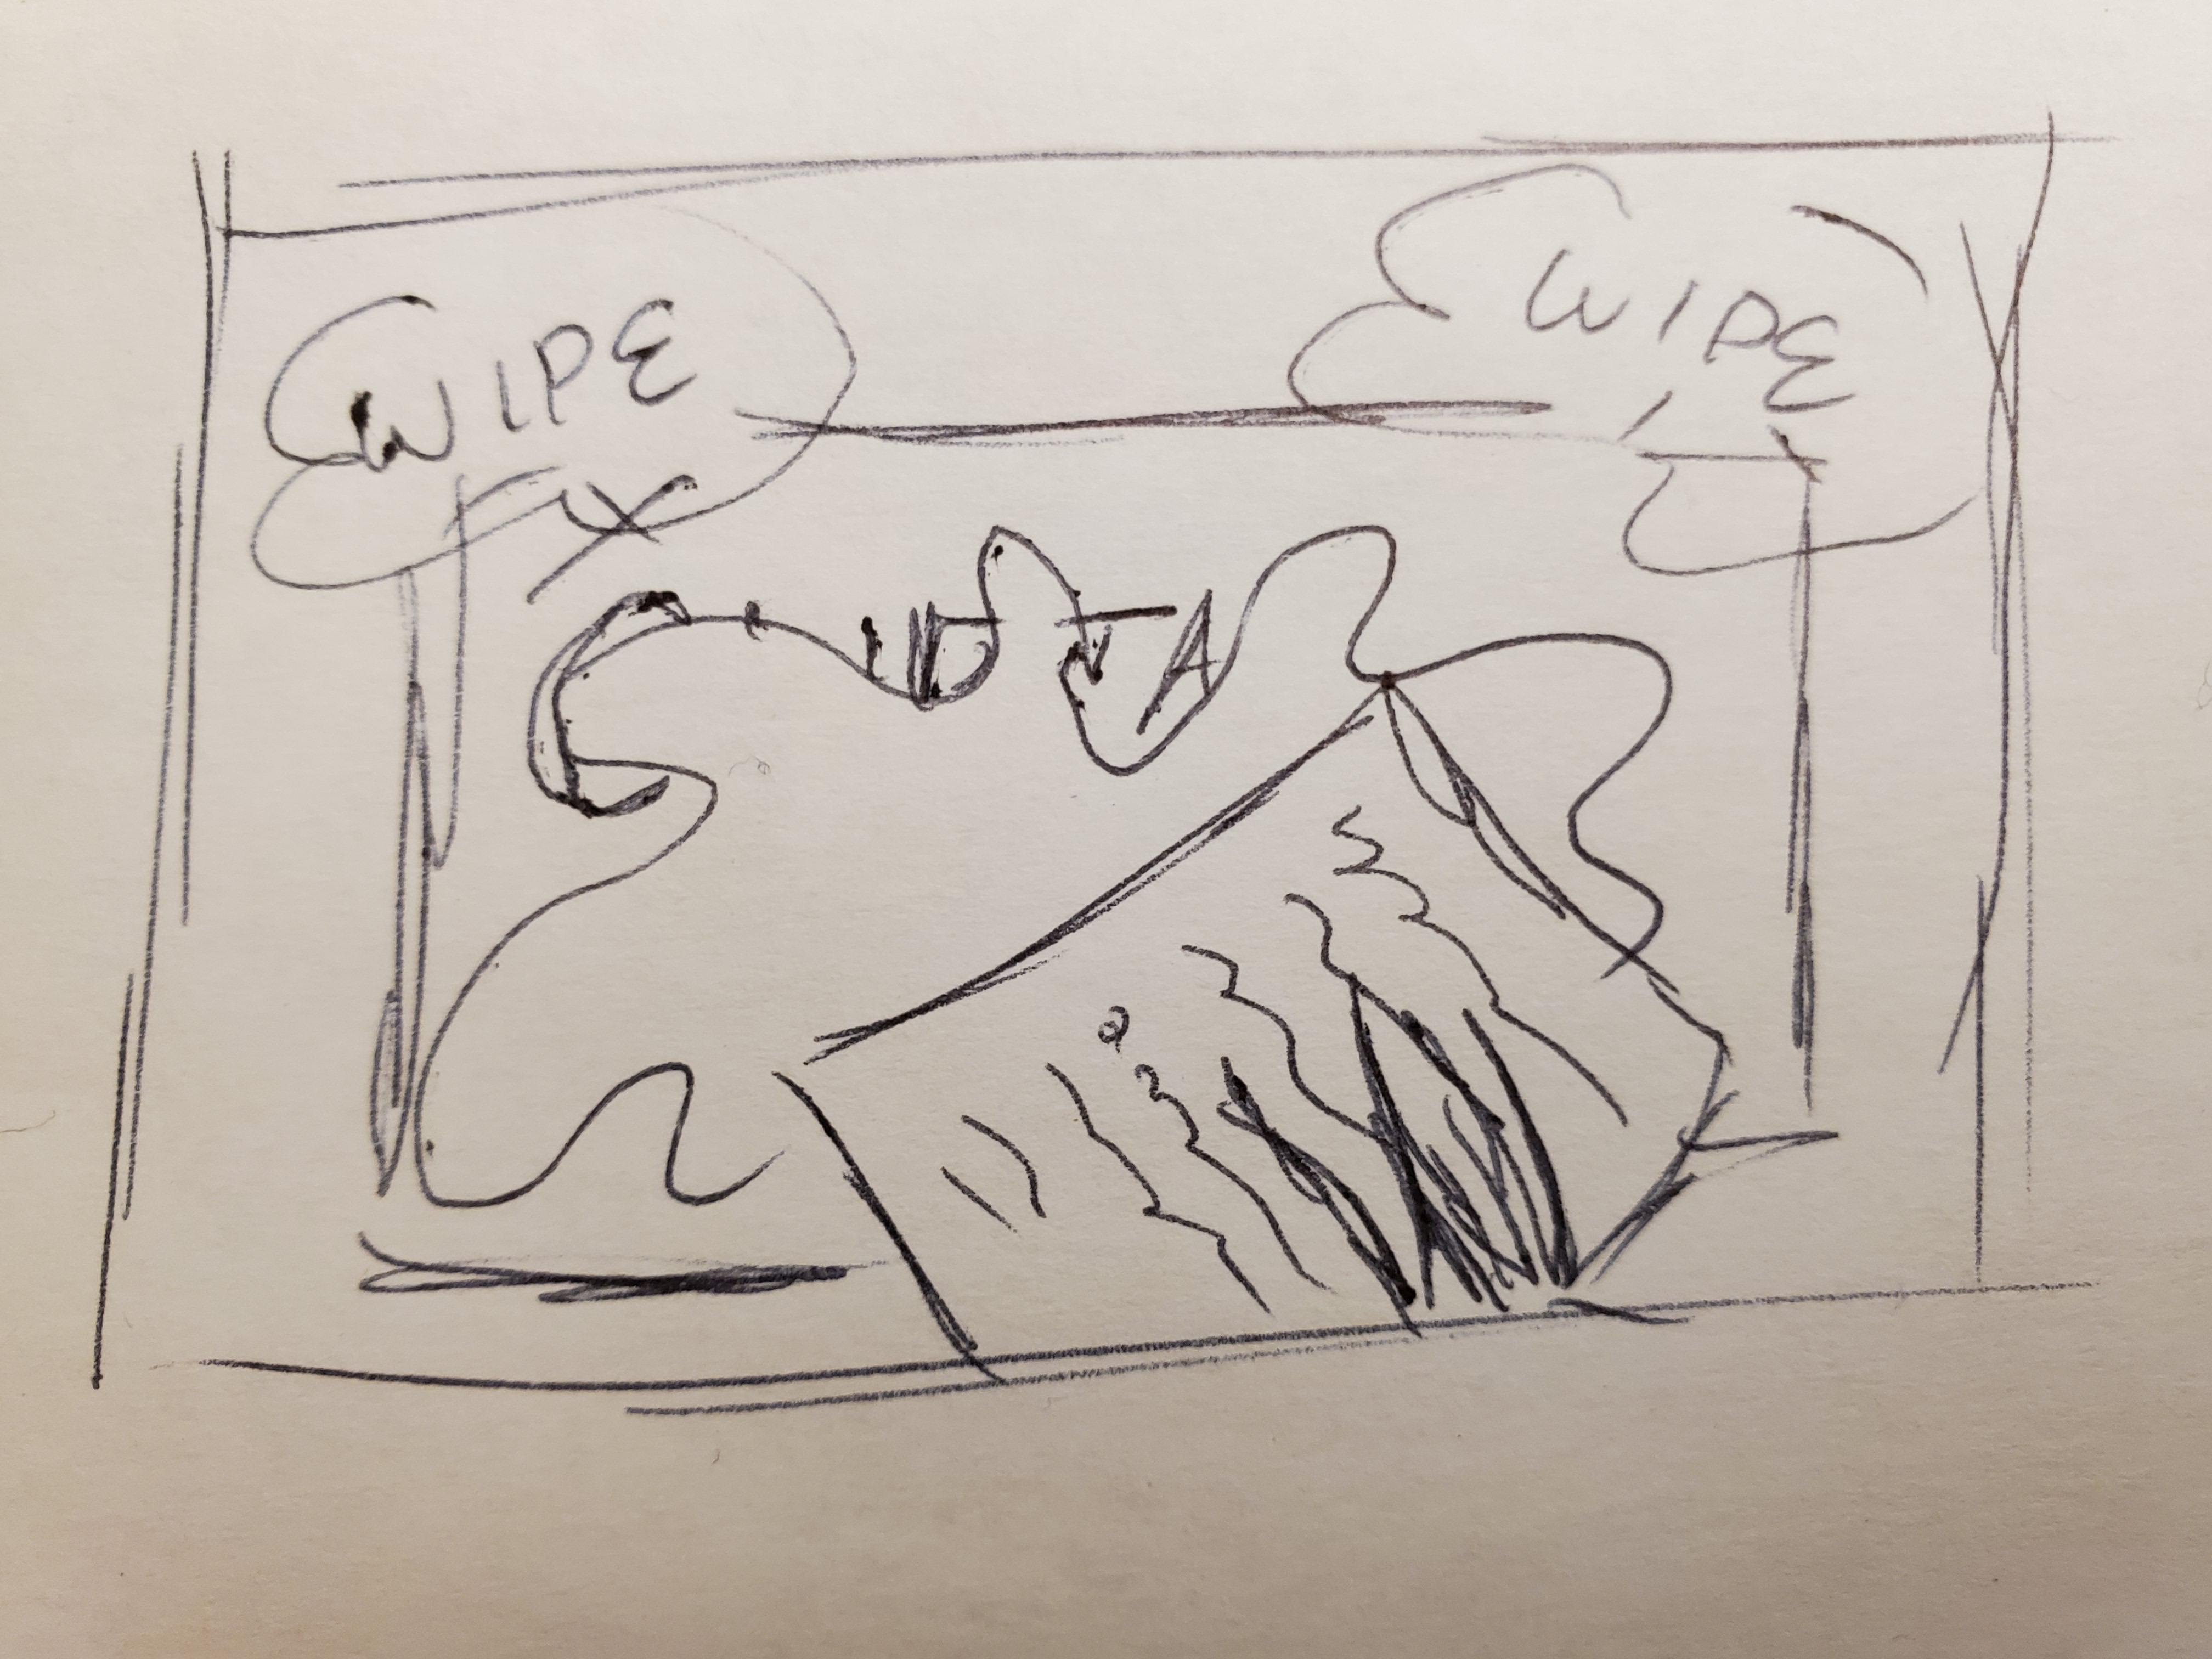 WIPE
FX
WIPE